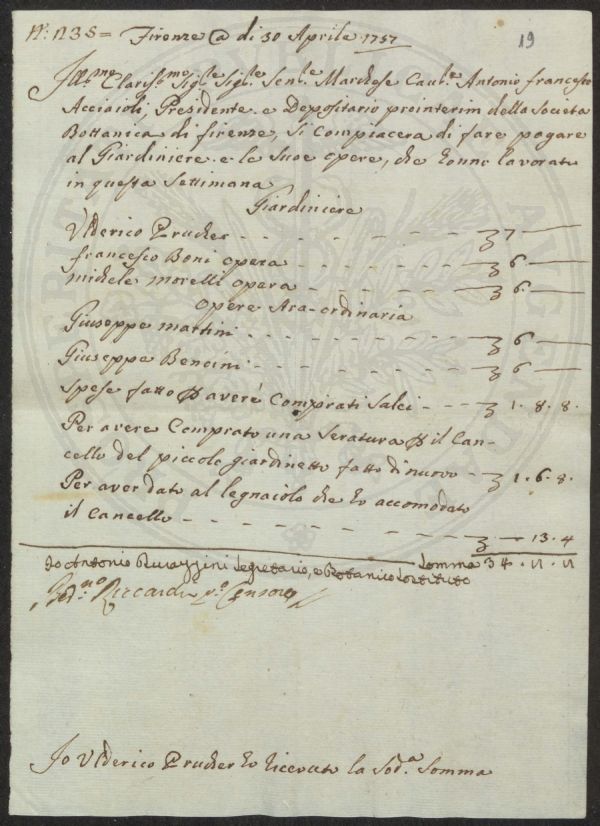 N.° 1135 = Firenze @ di 30 Aprile 1757
19
Ill.mo Clariss.mo Sig.le Sig.le Sen.le Marchese Cau.le Antonio francesco
Acciaioli, Presidente e Depositario prointerim della Società
Bottanica di firenze, Si Compiacera di fare pagare
al Giardiniere e le Suoe opere, che Ÿonno lavorato
in questa Settimana
Giardiniere
Ulderico Prucher - - - - - 7 —
francesco Boni opera - - - - 6 —
michele morelli opera - - - - 6 —
Opere -ordinaria
Giuseppe martini - - - - - 6 —
Giuseppe Bencini - - - - - 6 —
Spese fatto p avere Comprati Salci - - - 1 . 8 . 8.
Per avere Comprato una Seratura p il Can-
cello del piccolo giardinetto fatto di nuovo - 1 . 6 . 8.
Per aver dato al legnaiolo che ho accomodato
il Cancello - - - - - - — 13 . 4
Io Antonio Segretario, e Botanico Somma 34 . 11 . 11
Riccardi Censore
Io Ulderico Prucher ho riceuto la Sod.a Somma